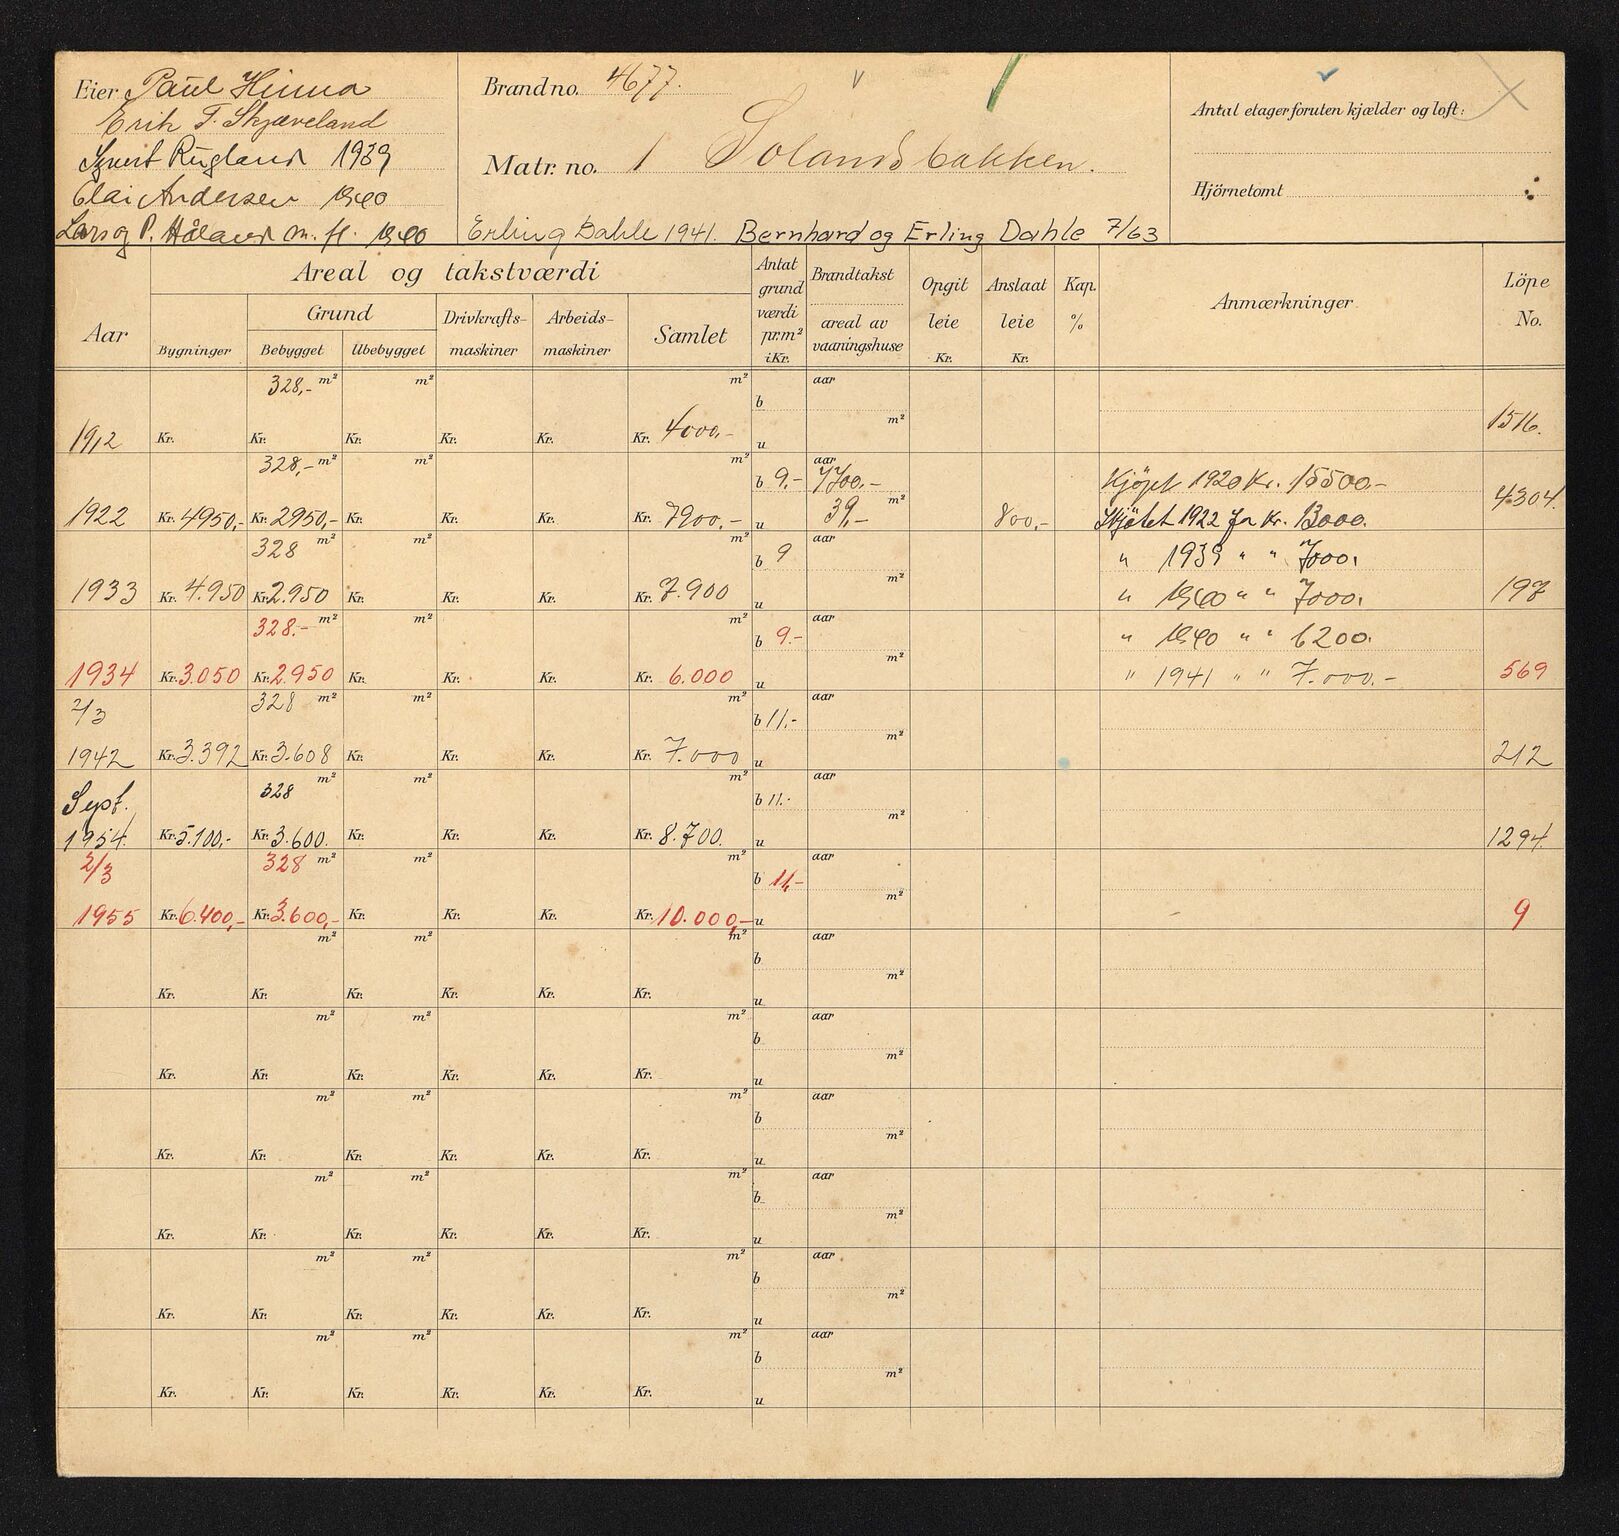 Eier Paul Hinna
Erik T. Skjæveland
Rugland 1939
Andersen 1940
Lars og P. Håland m. fl. 1940
Brand no. 4677.
Matr. no. 1 Solandsbakken.
Erling Dahle 1941. Bernhard og Erling Dahle 7/63
Antal etager foruten kjælder og loft:
Hjörnetomt
Aar
Areal og takstværdi
Bygninger
Grund
Bebygget Ubebygget
Drivkrafts-maskiner
Arbeids-maskiner
Samlet
Antat grund værdi pr. m² i Kr.
Brandtakst
areal av vaaningshuse
Opgit leie Kr.
Anslaat leie Kr.
Kap. %
Anmærkninger
Löpe No.
328,- m² m² m² aar
b
m²
1912 Kr. Kr. Kr. Kr. Kr. Kr. 4000,- u 1516.
328,- m² m² m² aar
b 9,- 7700,- Kjöpt 1920 Kr. 15500,-
39,- m²
1922 Kr. 4950,- Kr. 2950,- Kr. Kr. Kr. Kr. 7900,- u 800,- Skjötet 1922 for Kr. 13000. 4304.
328 m² m² m² aar
b 9 " 1939 " " 7000.
m²
1933 Kr. 4.950 Kr. 2.950 Kr. Kr. Kr. Kr. 7.900 u " 1940 " " 7000. 197
328.- m² m² m² aar
b 9.- " 1940 " " 6200.
m²
1934 Kr. 3.050 Kr. 2.950 Kr. Kr. Kr. Kr. 6.000 u " 1941 " " 7.000.- 569
2/3 328 m² m² m² aar
b 11.-
m²
1942 Kr. 3.392 Kr. 3.608 Kr. Kr. Kr. Kr. 7.000 u 212
Sept. 328 m² m² m² aar
b 11.-
m²
1954 Kr. 5.100,- Kr. 3.600. Kr. Kr. Kr. Kr. 8.700. u 1294.
2/3 328 m² m² m² aar
b 11,-
m²
1955 Kr. 6.400,- Kr. 3.600,- Kr. Kr. Kr. Kr. 10.000,- u 9
m² m² m² aar
b
m²
Kr. Kr. Kr. Kr. Kr. Kr. u
m² m² m² aar
b
m²
Kr. Kr. Kr. Kr. Kr. Kr. u
m² m² m² aar
b
m²
Kr. Kr. Kr. Kr. Kr. Kr. u
m² m² m² aar
b
m²
Kr. Kr. Kr. Kr. Kr. Kr. u
m² m² m² aar
b
m²
Kr. Kr. Kr. Kr. Kr. Kr. u
m² m² m² aar
b
m²
Kr. Kr. Kr. Kr. Kr. Kr. u